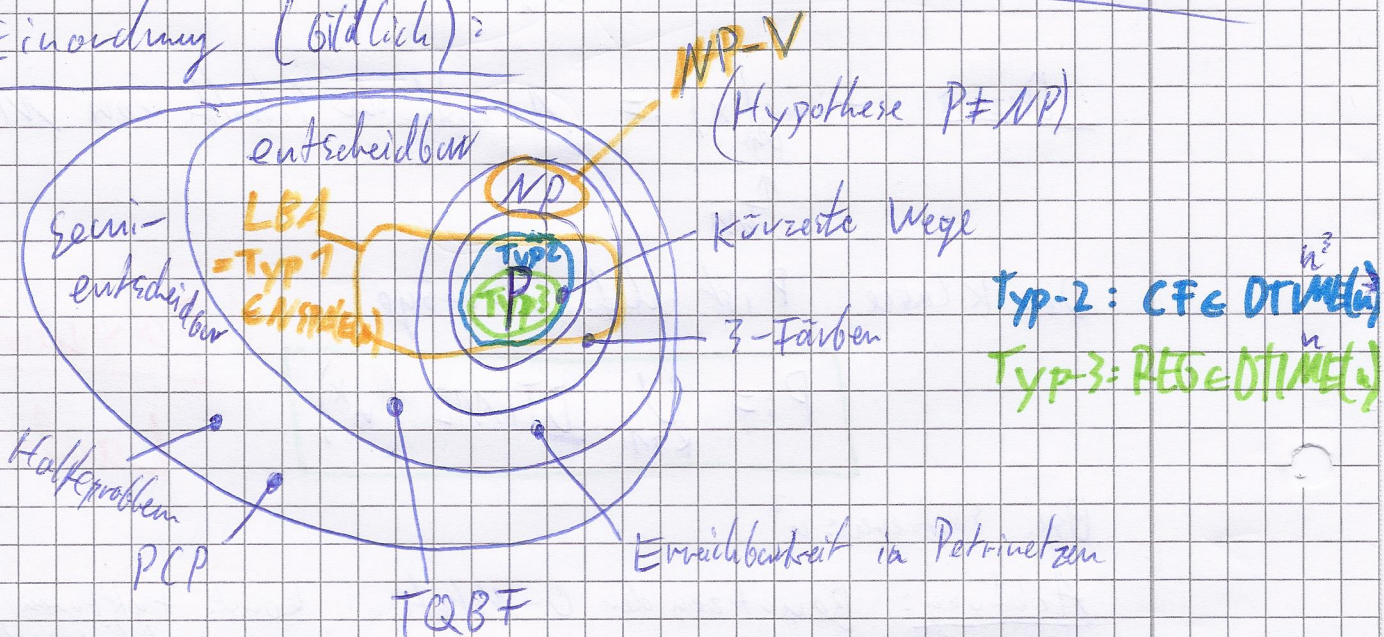 Einordnung (bildlich):
NP-V
(Hypothese P≠NP)
entscheidbar
NP
LBA
= Typ 1
∈ NSPACE(n)
semi-
entscheidbar
Typ2
P
Typ3
Kürzeste Wege
3-Färben
n³
Typ-2: CF ∈ DTIME(n³)
n
Typ-3: REG ∈ DTIME(n)
Halteproblem
PCP
TQBF
Erreichbarkeit in Petrinetzen